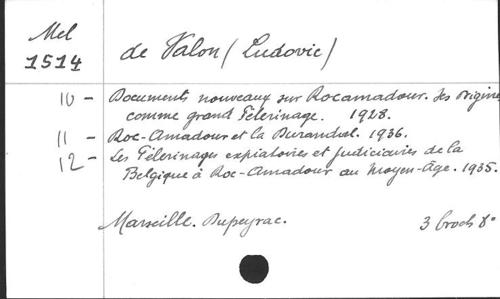 Mel
1514
de Valon (Ludovic)
10 - Documents nouveaux sur Rocamadour. Ses Origines
comme grand Pèlerinage. 1928.
11 - Roc-Amadour et la Durandal. 1936.
12 - Les Pèlerinages expiatoires et judiciaires de la
Belgique à Roc-Amadour au Moyen-Age. 1935.
Marseille. Dupeyrac. 3 broch 8°